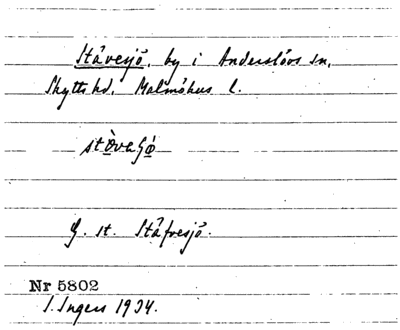 Stävesjö, by i Anderslövs sn,
Skytts hd, Malmöhus l.
G. st. Stäfvesjö.
Nr 5802
I. Ingers 1934.